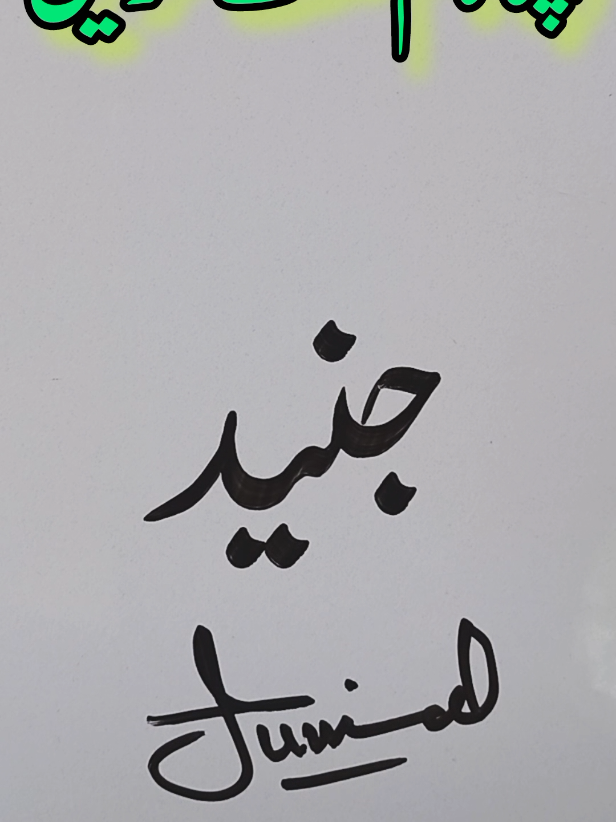 جنید
Juniad